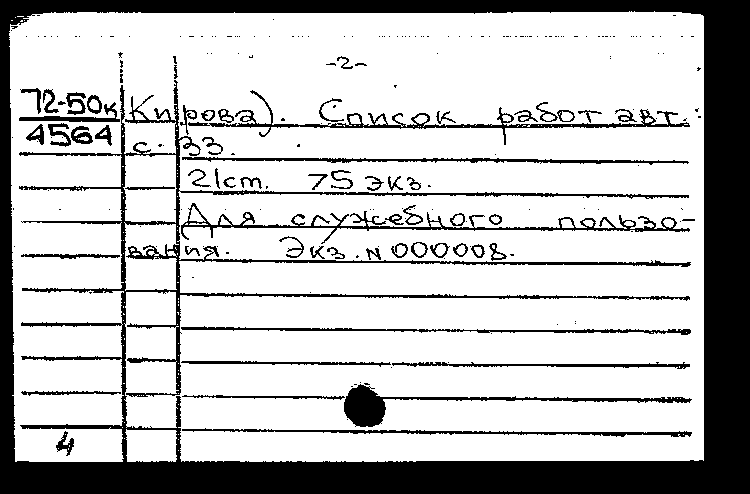 -2-
72-50к Кирова). Список работ авт.:
4564 с. 33.
21см. 75 экз.
Для служебного пользо-
вания. Экз. N 000008.
4